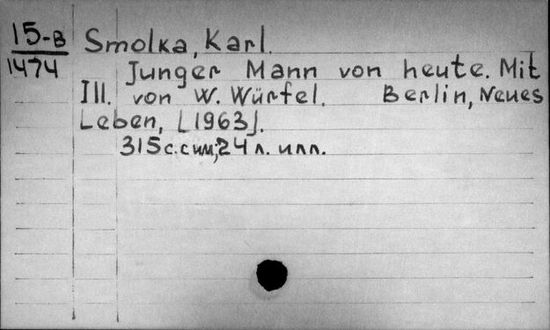 15-В Smolka, Karl.
1474
Junger Mann von heute. Mit
Ill. von W. Würfel. Berlin, Neues
Leben, [1963].
315 с. с илл.; 24 л. илл.